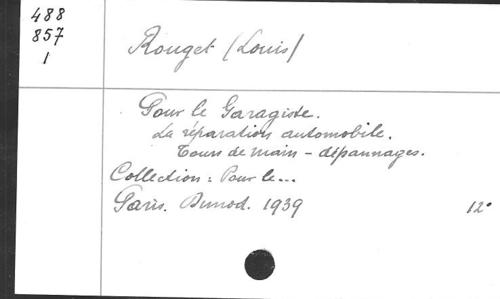 488
857
1
Rouget (Louis)
Pour le Garagiste.
La réparation automobile.
Tours de main - dépannages.
Collection : Pour le...
Paris. Dunod. 1939
12°